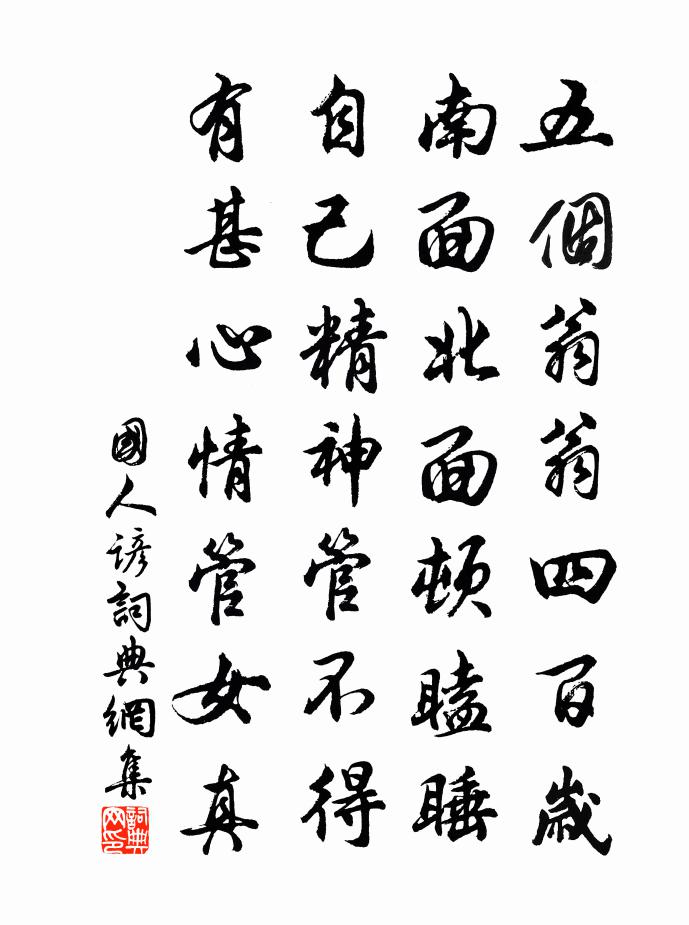 五個翁翁四百歲
南面北面頓瞌睡
自己精神管不得
有甚心情管女真
國人諺詞典網集
詞典网印